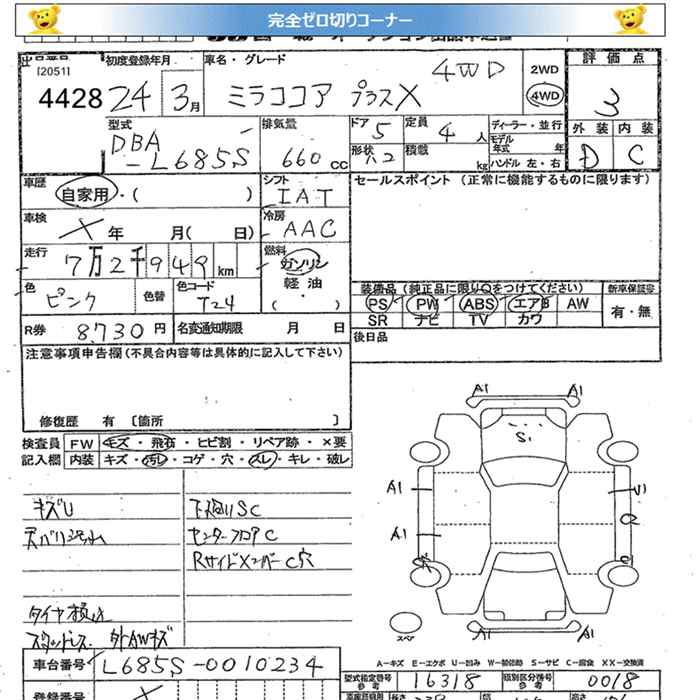 完全ゼロ切りコーナー
(2051)
初度登録年月 車名・グレード 評価点
4428 24年 3月 ミラココア プラスX 4WD 2WD 4WD 3
型式 DBA-L685S 排気量 660cc ドア 5 定員 4人 ディーラー・並行 外装 内装
形状 積載 kg モデル年式 年 ハンドル 左・右 D C
車歴 自家用・( ) シフト IAT セールスポイント (正常に機能するものに限ります)
車検 年 月( 日) 冷房 AAC
走行 7万2千949km 燃料 ガソリン 軽油 ( )
色 ピンク 色替 色コード T24
装備品 (純正品に限り○をつけてください) 新車保証書
PS PW ABS エアB AW 有・無
SR ナビ TV カワ
R券 8,730円 名変通知期限 月 日 後日品
注意事項申告欄 (不具合内容等は具体的に記入して下さい)
修復歴 有 〔箇所 〕
検査員 FW キズ・飛石・ヒビ割・リペア跡・×要
記入欄 内装 キズ・汚れ・コゲ・穴・スレ・キレ・破レ
キズU 下廻りSC
センターフロアC
RサイドメンバーC穴
タイヤ損
スタッドレス 外AWキズ
A1 A1
S1
A1
A1
U1
A1 A1
スペア
A－キズ E－エクボ U－凹み W－補修跡 S－サビ C－腐食 XX－交換済
車台番号 L685S-0010234
型式指定番号 16318 類別区分番号 0018
参考 参考
登録番号